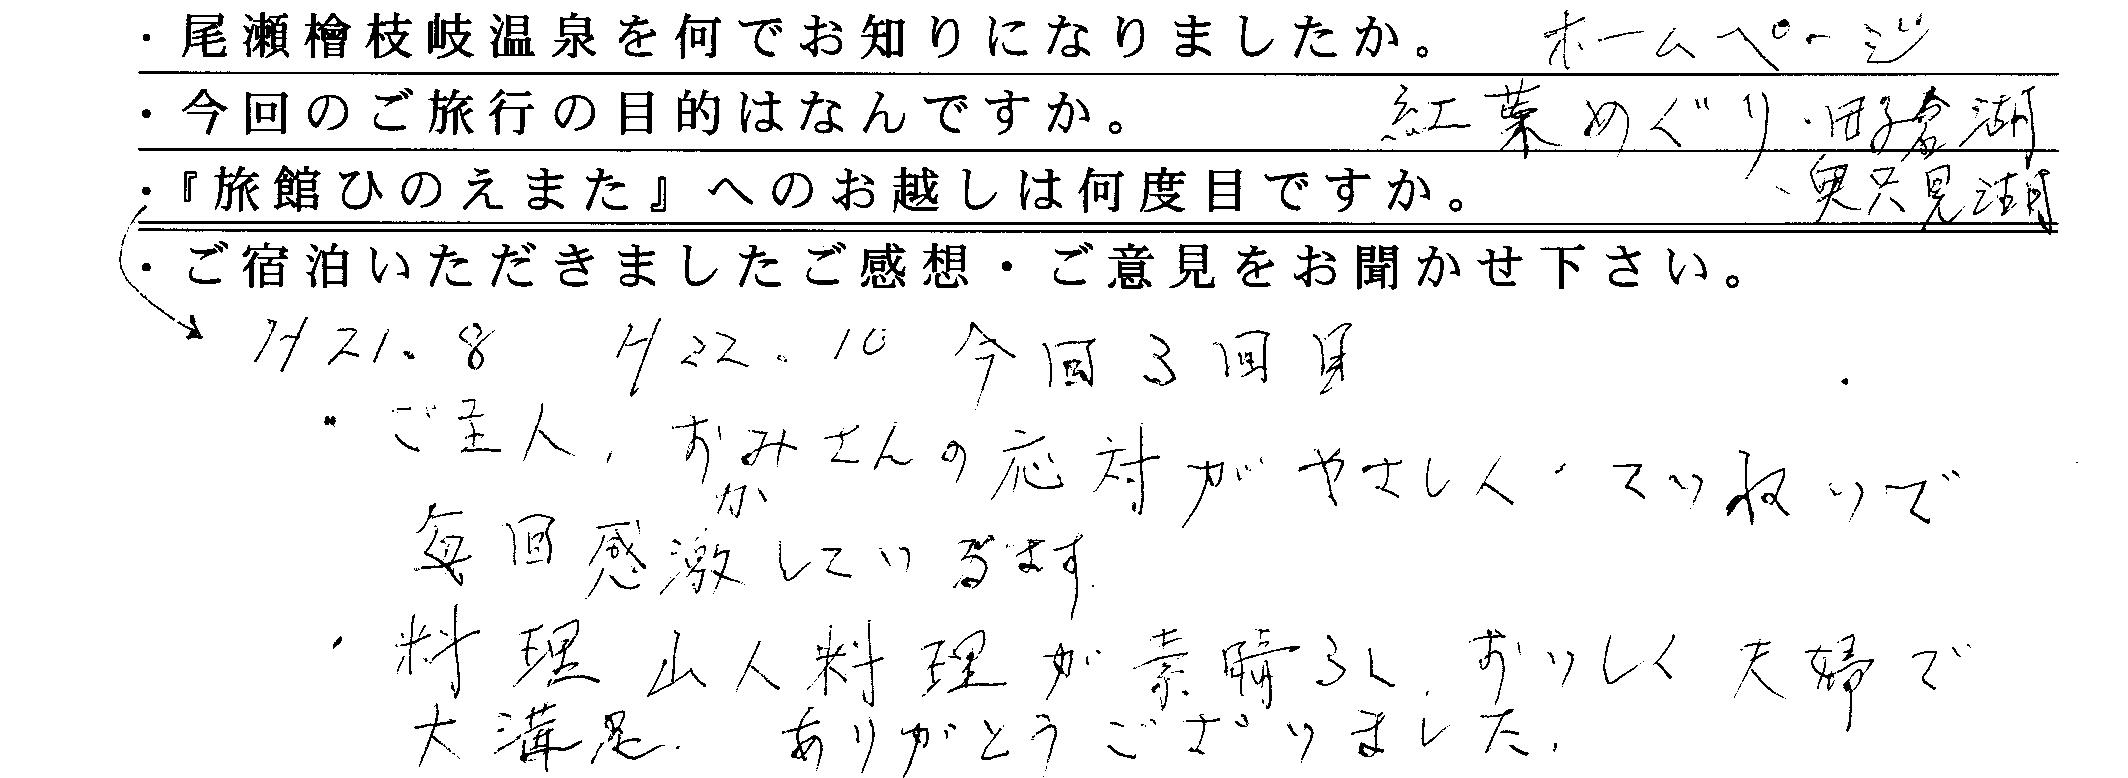 ・尾瀬檜枝岐温泉を何でお知りになりましたか。 ホームページ
・今回のご旅行の目的はなんですか。 紅葉めぐり・田子倉湖
・『旅館ひのえまた』へのお越しは何度目ですか。 ・奥只見湖
・ご宿泊いただきましたご感想・ご意見をお聞かせ下さい。
H21.8 H22.10 今回3回目
・ご主人、おかみさんの応対がやさしく・ていねいで
毎回感激しています
・料理 山人料理が素晴らし、おいしく夫婦で
大満足、ありがとうございました、